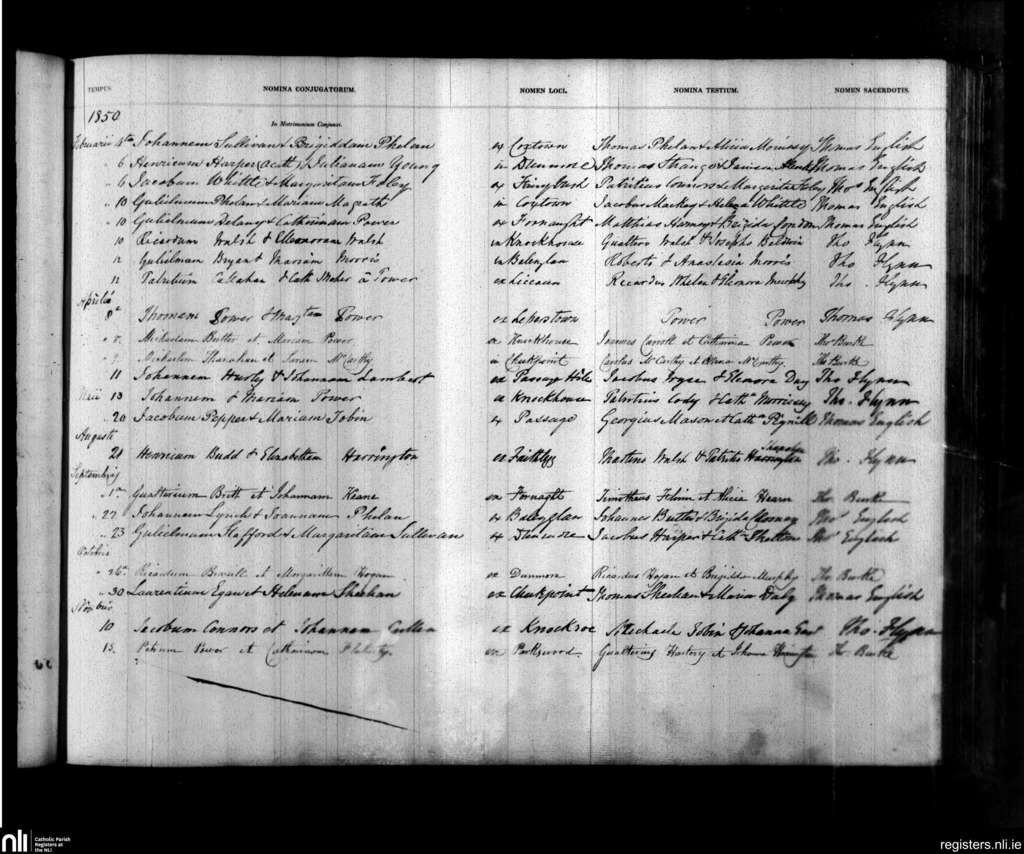 TEMPUS. NOMINA CONJUGATORUM. NOMEN LOCI. NOMINA TESTIUM. NOMEN SACERDOTIS.
1850
In Matrimonium Conjunxi.
Februarii 4ta Johannem Sullivan & Brigiddam Phelan ex Coxtown Thomas Phelan & Alicia Thomas English
" 6 Henricum Harper & Julianam Young in Dunmore Thomas Strange & Thomas English
" 6 Jacobum Whittle & Margaritam Foley ex Patritius Connors & Margarita Foley Thos English
" 10 Gulielmum Phelan & Mariam Magrath in Coxtown Jacobus Mackey & Helena Whittle Thomas English
" 10 Gulielmum Delany & Catherinam Power ex Fornaught Matthias & Brigida Thomas English
10 Ricardum Walsh & Elleonoram Walsh in Knockhouse Gualterus Walsh & Josephs Baldwin Tho Flynn
12 Gulielmum Bryan & Mariam Morris in Baleyglan Roberts & Anastasia Morris Tho Flynn
12 Patritium Callahan & Cath Maher a Power ex Ricardus Phelan & Elenora Murphy Tho. Flynn
Aprilis
8a Thomam Power & Power ex Power Power Thomas Flynn
" 8. Michaelem Butler et Mariam Power ex Knockhouse Joannes Carroll et Catharina Power Tho. Burke
" 9. Michaelem Shanahan et McCarthy in Cheekpoint McCarthy et McCarthy Tho Burke
11 Johannem Hurly & Johannam Lambert ex Passage Jacobus & Elenora Day Tho Flynn
Maii 13 Johannem & Mariam Power ex Knockhouse Patritius Cody & Catha Morrissey Tho. Flynn
" 20 Jacobum Pepper & Mariam Tobin ex Passage Georgius Mason & Catha Thomas English
Augusti
21 Henricum Budd & Elizabetham Harrington ex Faithlegg Martins Walsh & Patritis Tho. Flynn
Septembris
" 1a Gualterium Britt et Johannam Keane ex Fornaght Timotheus et Alicia Hearn Tho. Burke
" 22 Johannem Lynch & Joannam Phelan ex Baleyglan Johannes Butler & Brigida Thos English
" 23 Gulielmum Stafford & Margaritam Sullivan ex Dunmore Jacobus Harper & Cath Thos English
Octobris
" 26a Ricardum et Margarittam Hogan ex Dunmore Ricardus Hogan et Brigidda Murphy Tho Burke
" 30 Laurentium Egan et Helenam Sheehan ex Cheekpoint Thomas Sheehan & Maria Daly Thomas English
Novbris
10 Jacobum Connors et Johannam Cullen ex Knockroe Michaele Tobin & Johanna Tho. Flynn
15. Petrum Power et Catherinam ex Parkswood. Gualterius et Johanna Tho. Burke
nli Catholic Parish Registers at the NLI
registers.nli.ie